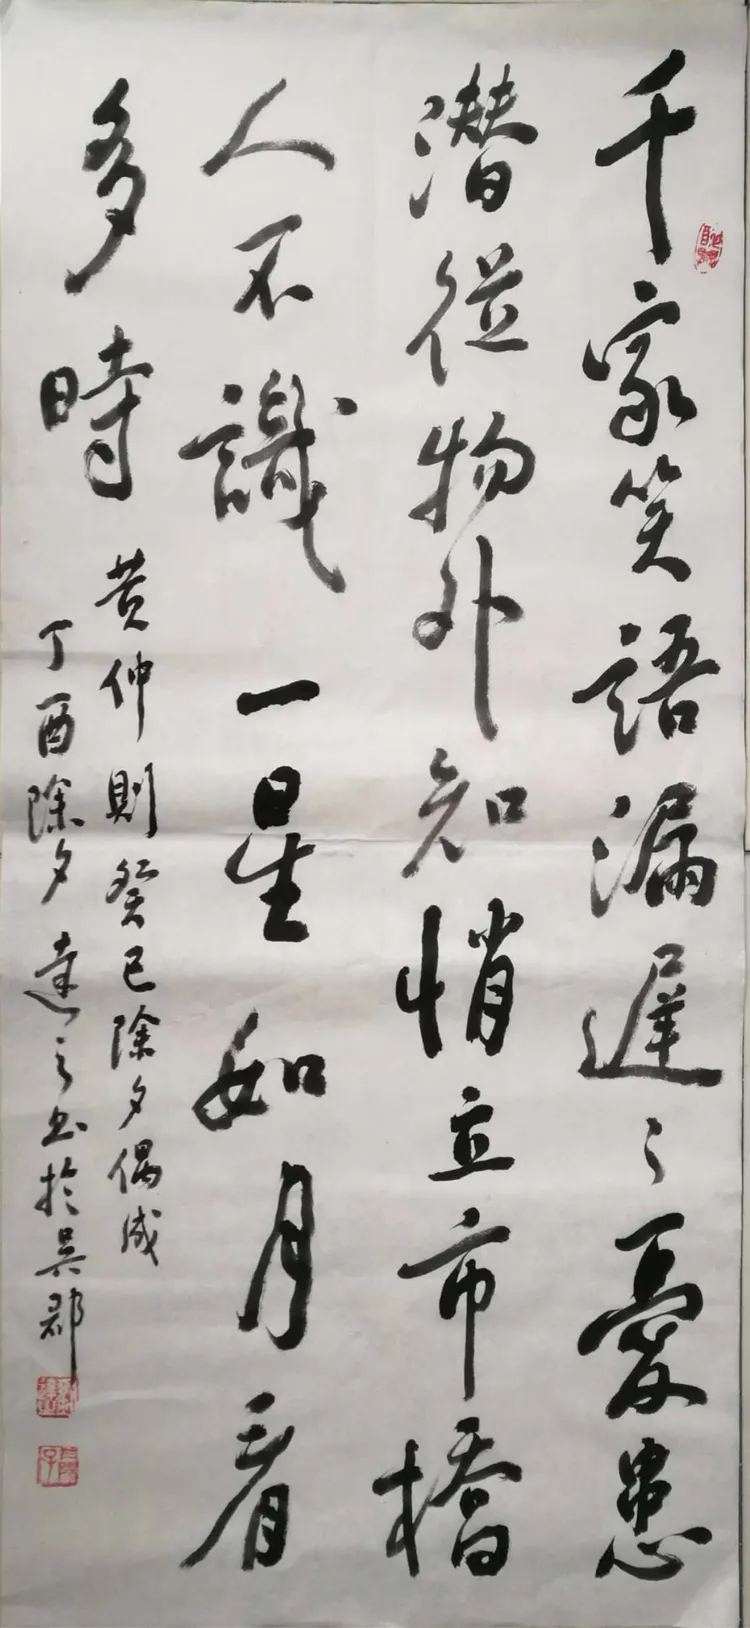 千家笑語漏遲〻憂患
潛從物外知悄立市橋
人不識一星如月看
多時
黄仲則癸巳除夕偶成
丁酉除夕達之书於吴郡